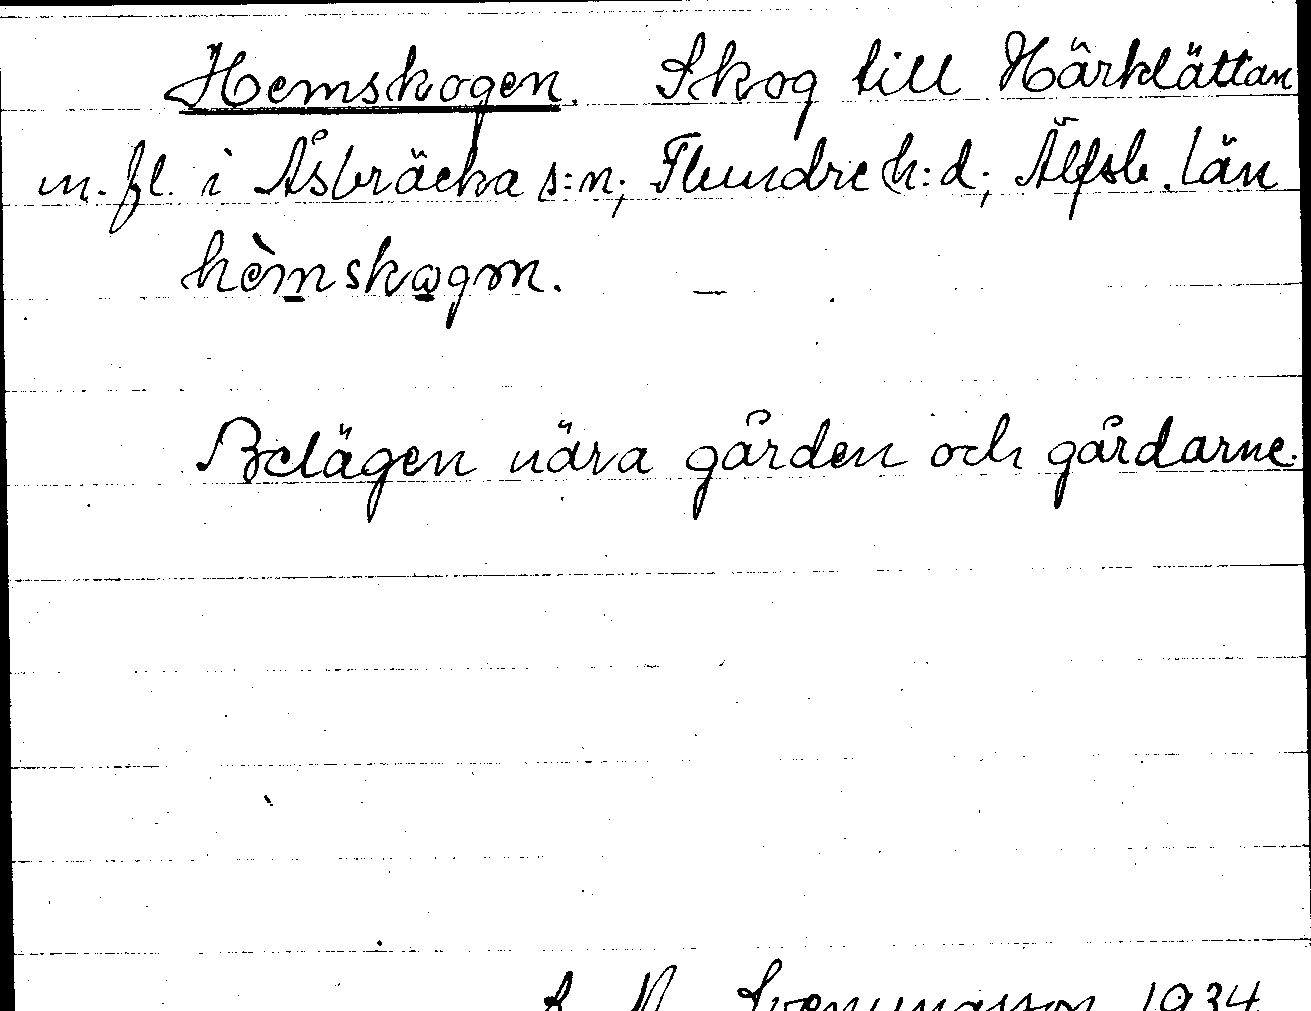 Hemskogen. Skog till Härklättan
m. fl. i Åsbräcka s:n; Flundre h:d; Älfsb. län
hèmskogm. –
Belägen nära gården och gårdarne.
1934